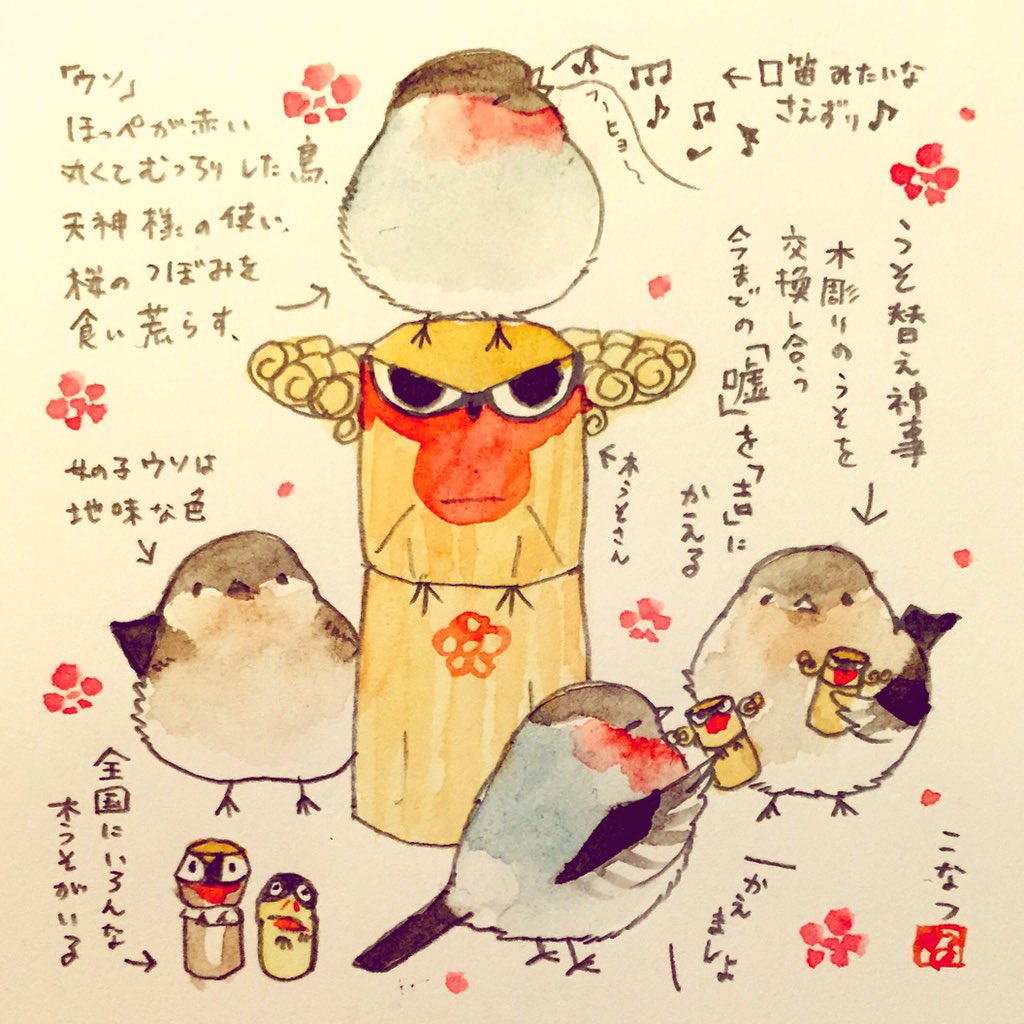 「ウソ」
ほっぺが赤い
丸くてむっちりした鳥、
天神様の使い、
桜のつぼみを
食い荒らす、
フーヒョー
←口笛みたいな
さえずり♪
うそ替え神事
木彫りのうそを
交換し合う
今までの「嘘」を「吉」に
かえる
←木うそさん
女の子ウソは
地味な色
全国にいろんな
木うそがいる
かえ
ましょ
こなつ